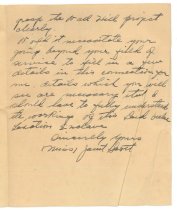 grasp the Wall project
clearly.
Would it necessitate your
going beyond your field of
service to fill in a few
details in this connection for
me, details which you will
see are necessary that I
should have to fully understand
the workings of this
Location Enclave
Sincerely yours
Miss